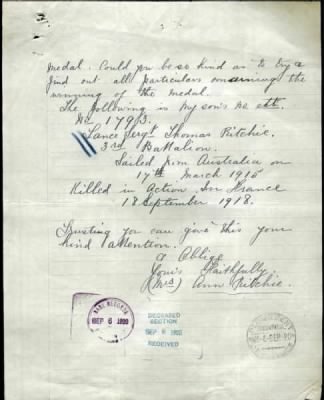 medal. Could you be so kind as to try &
find out all particulars concerning the
winning of the medal.
The following is my son's No etc.
No. 1793.
Lance Sergt Thomas Ritchie.
3rd Battalion.
Sailed from Australia on
17th March 1915
Killed in Action In France
18 September 1918.
Trusting you can give this your
kind attention.
& Oblige
Yours Faithfully,
(Mrs) Ann Ritchie.
BASE RECORDS
SEP 6 1920
DECEASED
SECTION
SEP 6 1920
RECEIVED